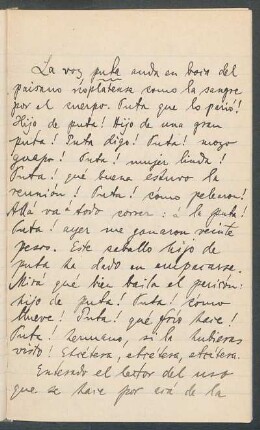 La voz puta anda en boca del
paisano rioplatense como la sangre
por el cuerpo. Puta que lo parió!
Hijo de puta! Hijo de una gran
puta! Puta digo! Puta! mozo
guapo! Puta! mujer linda!
Puta! qué buena estuvo la
reunión! Puta! cómo pelearon!
Allá va á todo correr: á la puta!
Puta! ayer me ganaron veinte
pesos. Este caballo hijo de
puta ha dado en empacarse.
Mirá qué bien baila el parejón:
hijo de puta! Puta! cómo
llueve! Puta! qué frío hace!
Puta! hermano, si la hubieras
visto! Etcétera, etcétera, etcétera.
Enterado el lector del uso
que se hace por acá de la